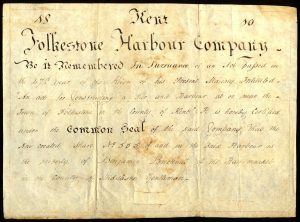 18 Kent 10
Folkestone Harbour Company
Be it Remembered In Pursuance of an Act passed in
the 47th Year of the Reign of his Present Majesty Intituled
An act for Constructing a Pier and Harbour at or near the
Town of Folkestone in the County of Kent It is hereby Certified
under the Common Seal of the said Company that the
Share No of and in the said Harbour is
the property of Benjamin of the Haymarket
in the County of Middlesex Gentleman